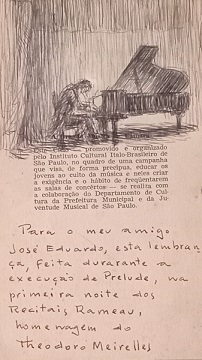 promovido e organizado
pelo Instituto Cultural Italo-Brasileiro de
São Paulo, no quadro de uma campanha
que visa, de forma precípua, educar os
jovens ao culto da música e nêles criar
a exigência e o hábito de freqüentarem
as salas de concêrtos — se realiza com
a colaboração do Departamento de Cul-
tura da Prefeitura Municipal e da Ju-
ventude Musical de São Paulo.
Para o meu amigo
José Eduardo, esta lembran
ça, feita durarante a
execução de Prelude, na
primeira noite dos
Recitais Rameau,
homenagem do
Theodoro Meirelles